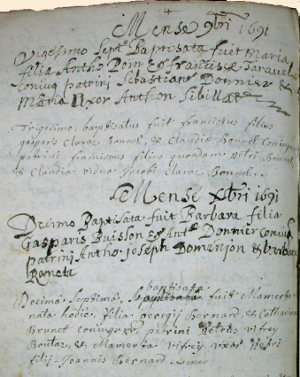 Mense 9bri 1691
Vigesimo Sept Baptisata fuit Maria
filia Antho Doin et francisæ Taravel
coniug patrini Sebastianus Donnier &
Maria Uxor Anthon Sibillat
Trigesimo baptisatus fuit franciscus filius
gasparis claraz Bonnel, & Claudiæ Bonnet coniug
patrini franciscus filius quondam petri Bonnel
& Claudia vidua Jacobi claraz Bonnel
Mense Xbri 1691
Decimo Baptisata fuit Barbara filia
Gasparis Buisson & Antæ Donnier coniug
patrini Antho Joseph Domenjon & barbara
Decima septima, baptisata fuit Mamerta
nata hodie, filia georgij Bernard, & Catharinæ
Brunet coniugum, patrini Petrus vifrey
& Mamerta vifrey uxor Petri
filij Joannis Bernard